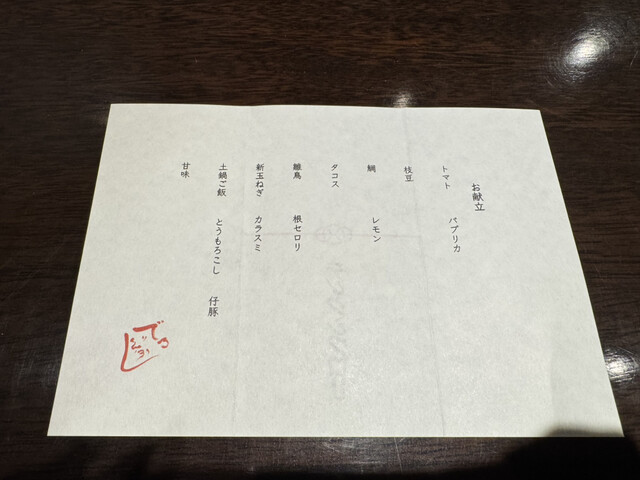 お献立
トマト パプリカ
枝豆
鯛 レモン
タコス
雛鳥 根セロリ
新玉ねぎ カラスミ
土鍋ご飯 とうもろこし 仔豚
甘味